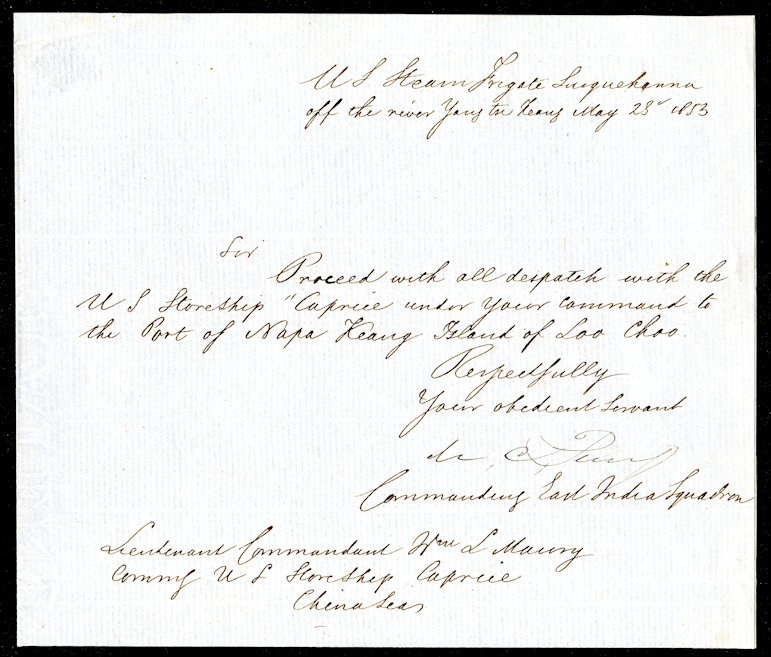 U S Steam Frigate Susquehanna
off the river Yang tse Keang May 23d 1853
Sir
Proceed with all despatch with the
U S Storeship "Caprice under your command to
the Port of Napa Keang Island of Loo Choo.
Respectfully
Your obedient Servant
M. C. Perry
Commanding East India Squadron
Lieutenant Commandant Wm L Maury
Commg U S Storeship Caprice
China Seas